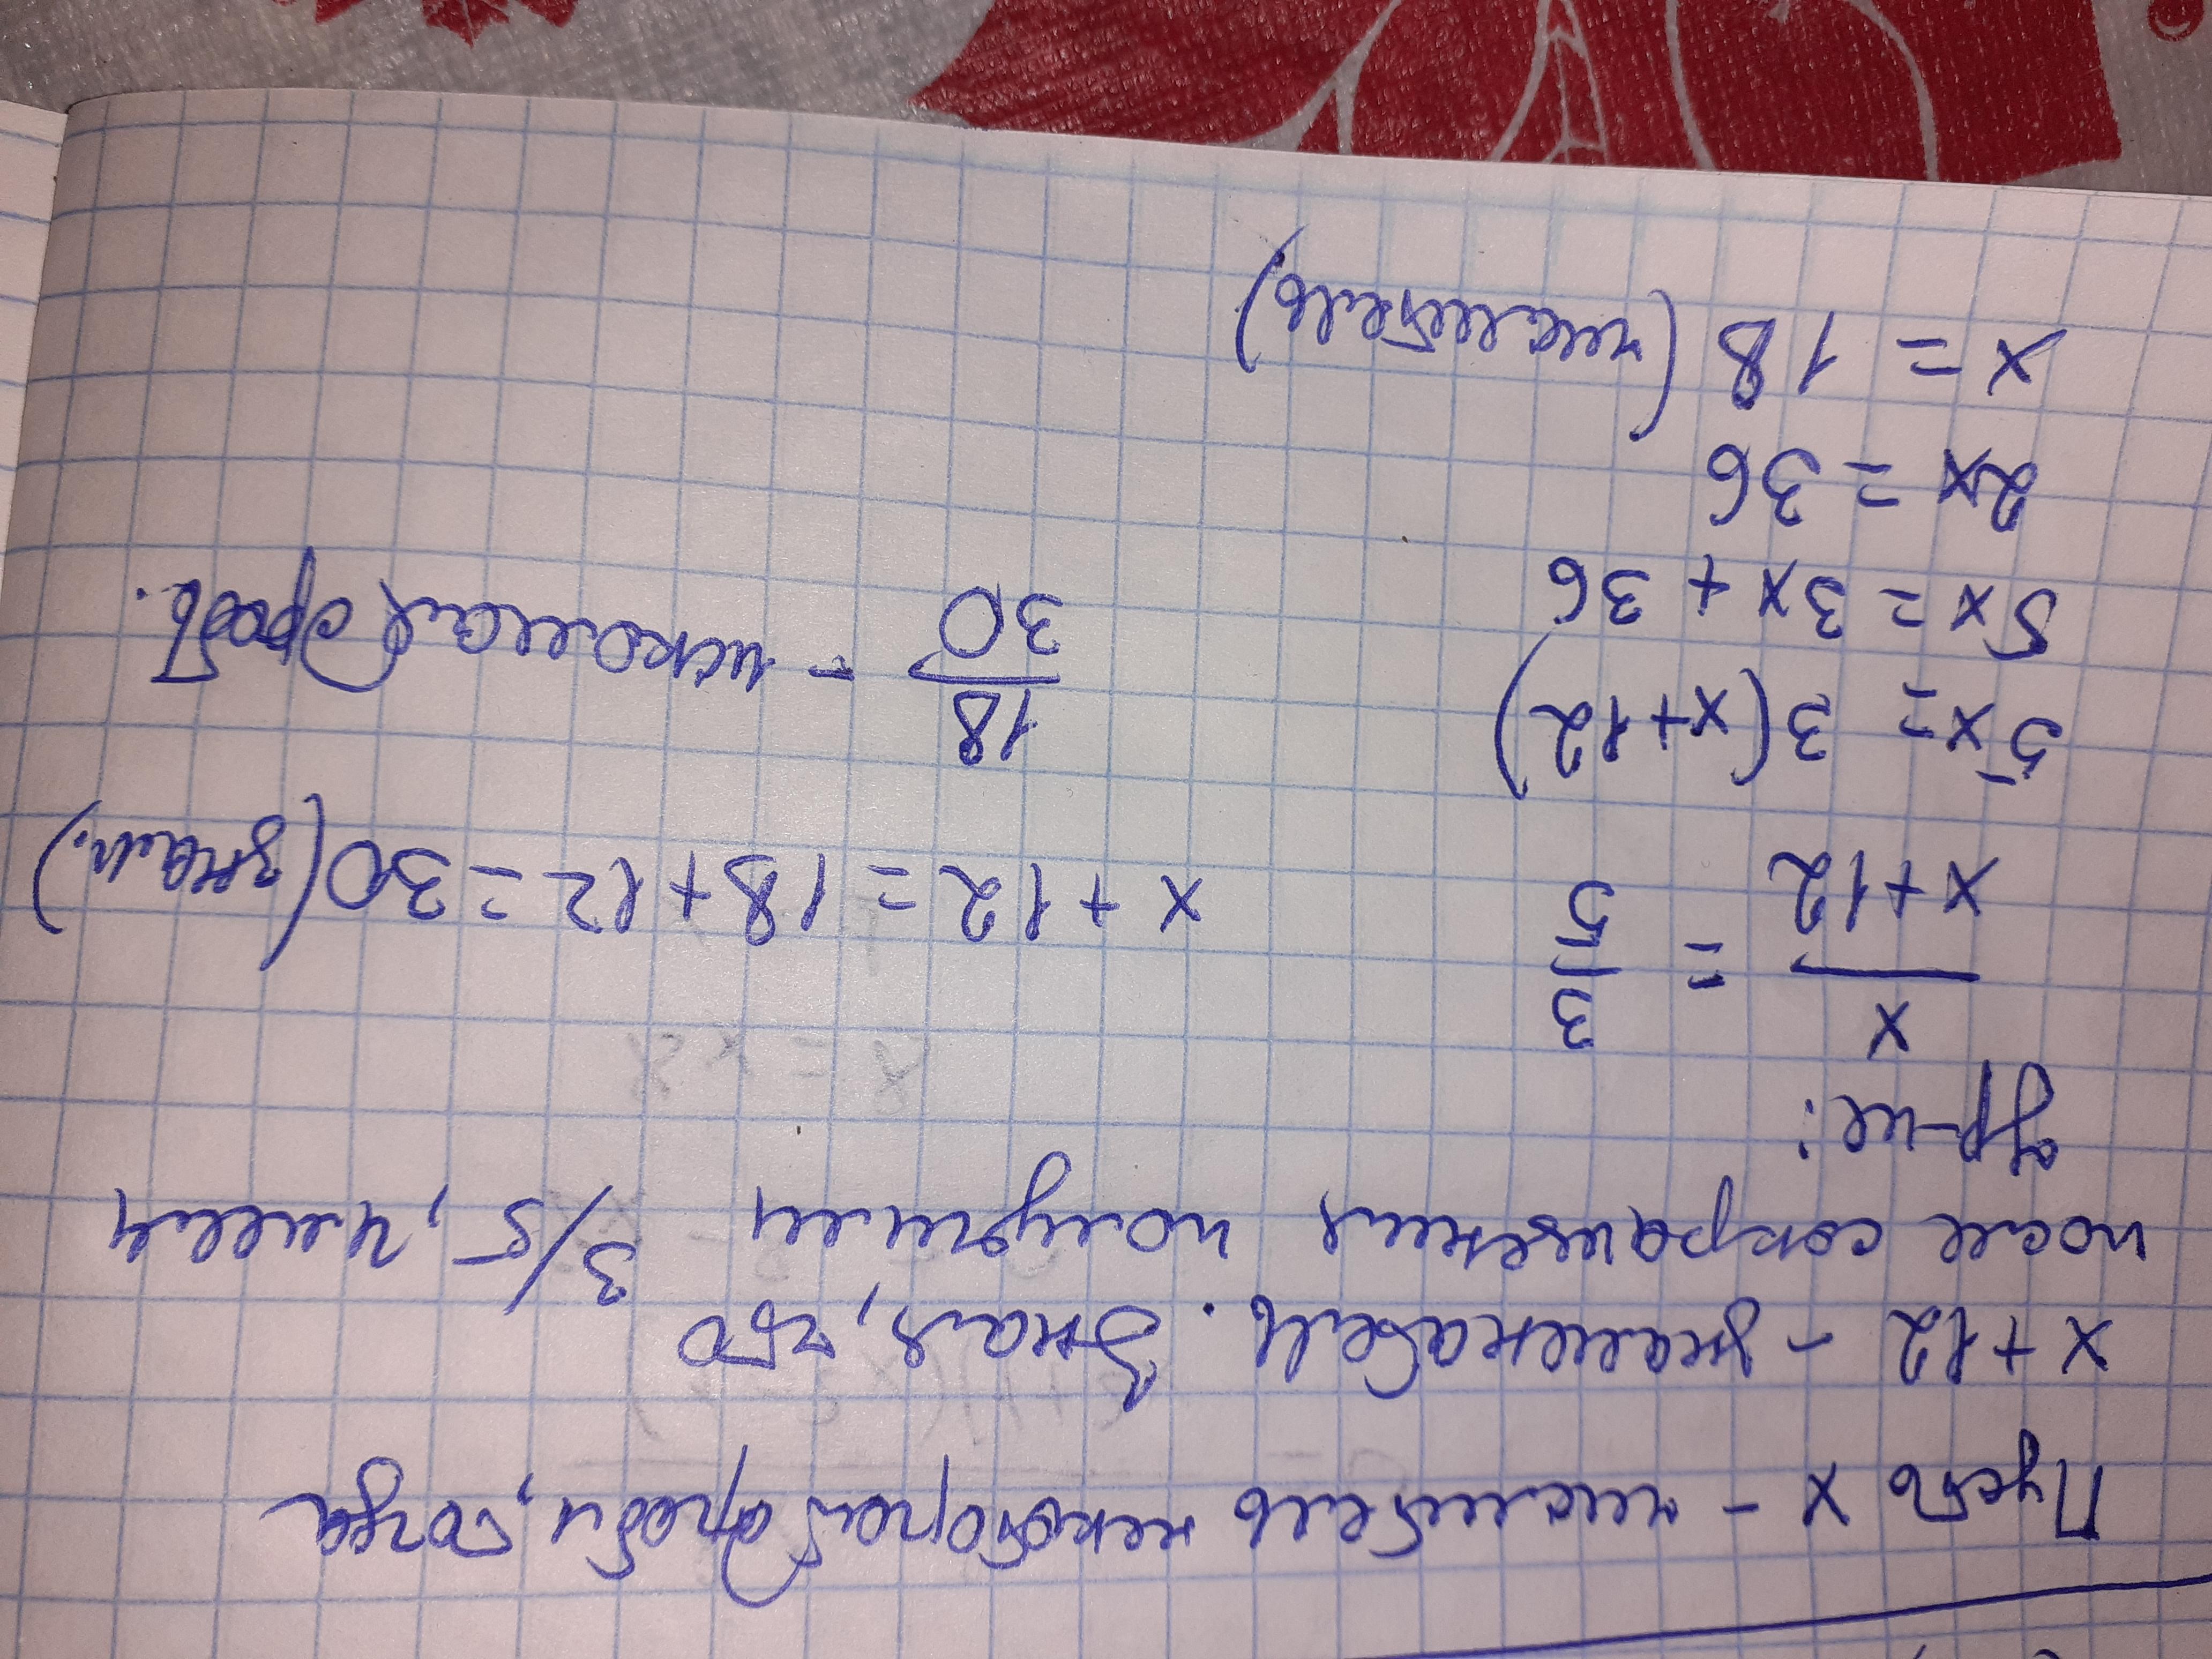 Пусть x - числитель некоторой дроби, тогда
x+12 - знаменатель. Зная, что
после сокращения получили 3/5, имеем
ур-ие:
x/(x+12) = 3/5
5x = 3(x+12)
5x = 3x + 36
2x = 36
x = 18 (числитель)
x + 12 = 18 + 12 = 30 (знам.)
18/30 - искомая дробь.